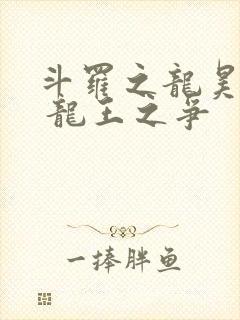 斗羅之龍昊
龍王之爭
一捧胖鱼